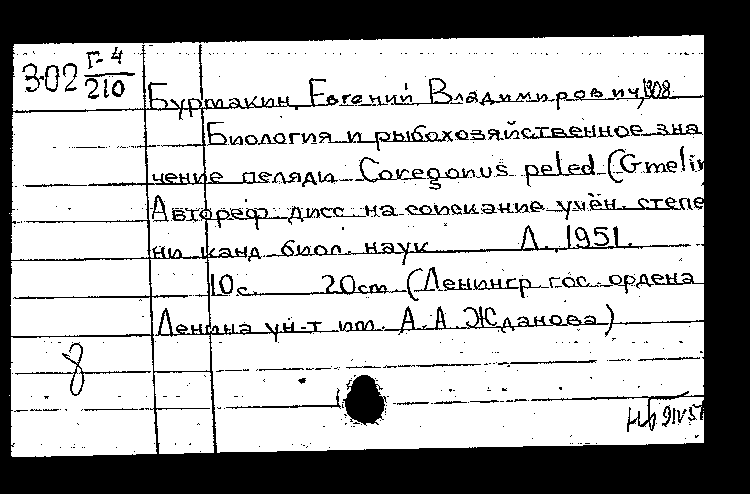 3-02 Г-4/210
Бурмакин, Евгений Владимирович, 1908
Биология и рыбохозяйственное зна
чение пеляди Coregonus peled (Gmelin
Автореф. дисс. на соискание учён. степе
ни канд. биол. наук Л. 1951.
10с. 20cm (Ленингр. гос. ордена
Ленина ун-т им. А. А. Жданова)
8